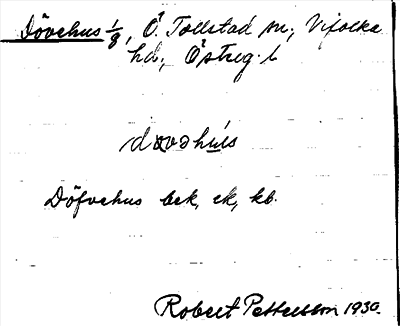 Dövehus 1/8, Ö. Tollstad sn., Vifolka
hd., Östreg. l
Döfvehus bek, ek, kb.
Robert Pettersson 1930.